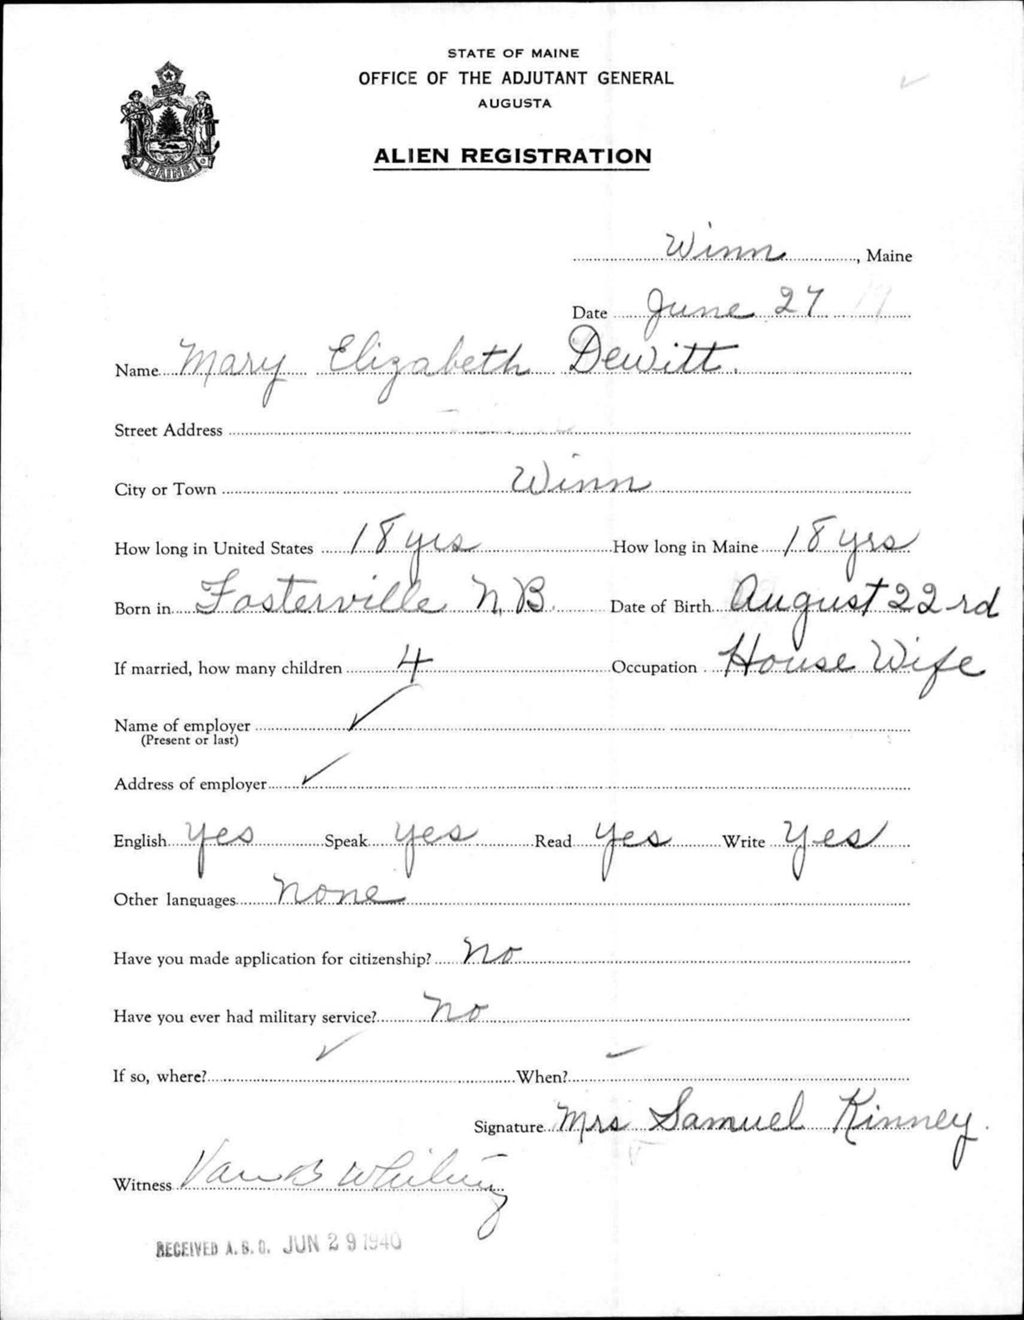 STATE OF MAINE
OFFICE OF THE ADJUTANT GENERAL
AUGUSTA
ALIEN REGISTRATION
MAINE
Winn, Maine
Date June 27
Name Mary Elizabeth Dewitt.
Street Address
City or Town Winn
How long in United States 18 yrs How long in Maine 18 yrs
Born in Fosterville N,B. Date of Birth August 22rd
If married, how many children 4 Occupation House Wife
Name of employer
(Present or last)
Address of employer
English yes Speak yes Read yes Write yes
Other languages none
Have you made application for citizenship? No
Have you ever had military service? No
If so, where? When?
Signature Mrs Samuel Kinney.
Witness Van B Whiting
RECEIVED A. G. O. JUN 29 1940